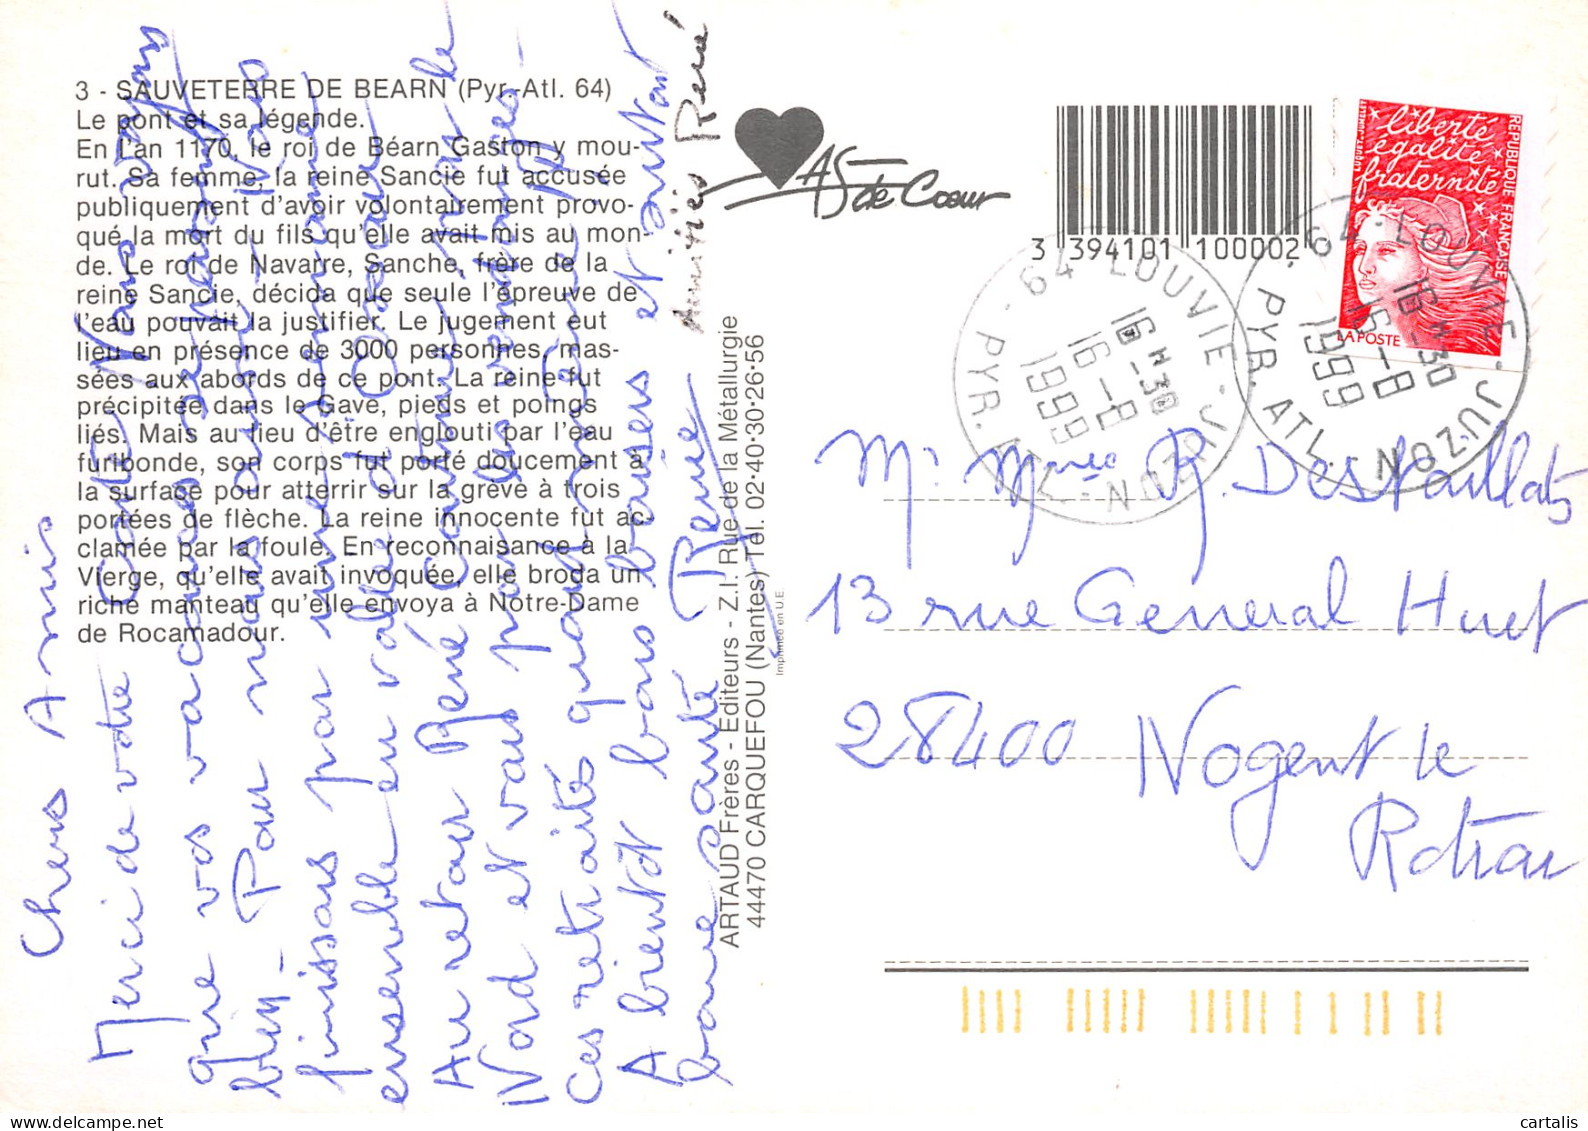 3 - SAUVETERRE DE BEARN (Pyr.-Atl. 64)
Le pont et sa légende.
En l'an 1170, le roi de Béarn Gaston y mou-
rut. Sa femme, la reine Sancie fut accusée
publiquement d'avoir volontairement provo-
qué la mort du fils qu'elle avait mis au mon-
de. Le roi de Navarre, Sanche, frère de la
reine Sancie, décida que seule l'épreuve de
l'eau pouvait la justifier. Le jugement eut
lieu en présence de 3000 personnes, mas-
sées aux abords de ce pont. La reine fut
précipitée dans le Gave, pieds et poings
liés. Mais au lieu d'être englouti par l'eau
furibonde, son corps fut porté doucement à
la surface pour atterrir sur la grève à trois
portées de flèche. La reine innocente fut ac-
clamée par la foule. En reconnaisance à la
Vierge, qu'elle avait invoquée, elle broda un
riche manteau qu'elle envoya à Notre-Dame
de Rocamadour.
Chers Amis
Merci de votre Carte Nous voyons
que vos vacances se passent
bien - Pour nous aussi Nous
finissons par une semaine
ensemble en vallée d'Ossau
Au retour René Continue vers le
Nord et vous pour les vendanges -
Ces retraités quand même !!
A bientôt bons baisers et surtout
bonne santé Renée
Amitiés René
ARTAUD Frères - Éditeurs - Z.I. Rue de la Métallurgie
44470 CARQUEFOU (Nantes) Tél. 02·40·30·26·56
Imprimée en U.E.
AS de Cœur
3 394101 100002
liberté
égalité
fraternité
REPUBLIQUE FRANÇAISE
LA POSTE
64 - LOUVIE - JUZON
16 H 30
16 - 8
1999
PYR. ATL.
64 - LOUVIE - JUZON
16 H 30
16 - 8
1999
PYR. ATL.
Mr Mme R. Desvaillats
13 rue General Huet
28400 Nogent le
Rotrou
cartalis